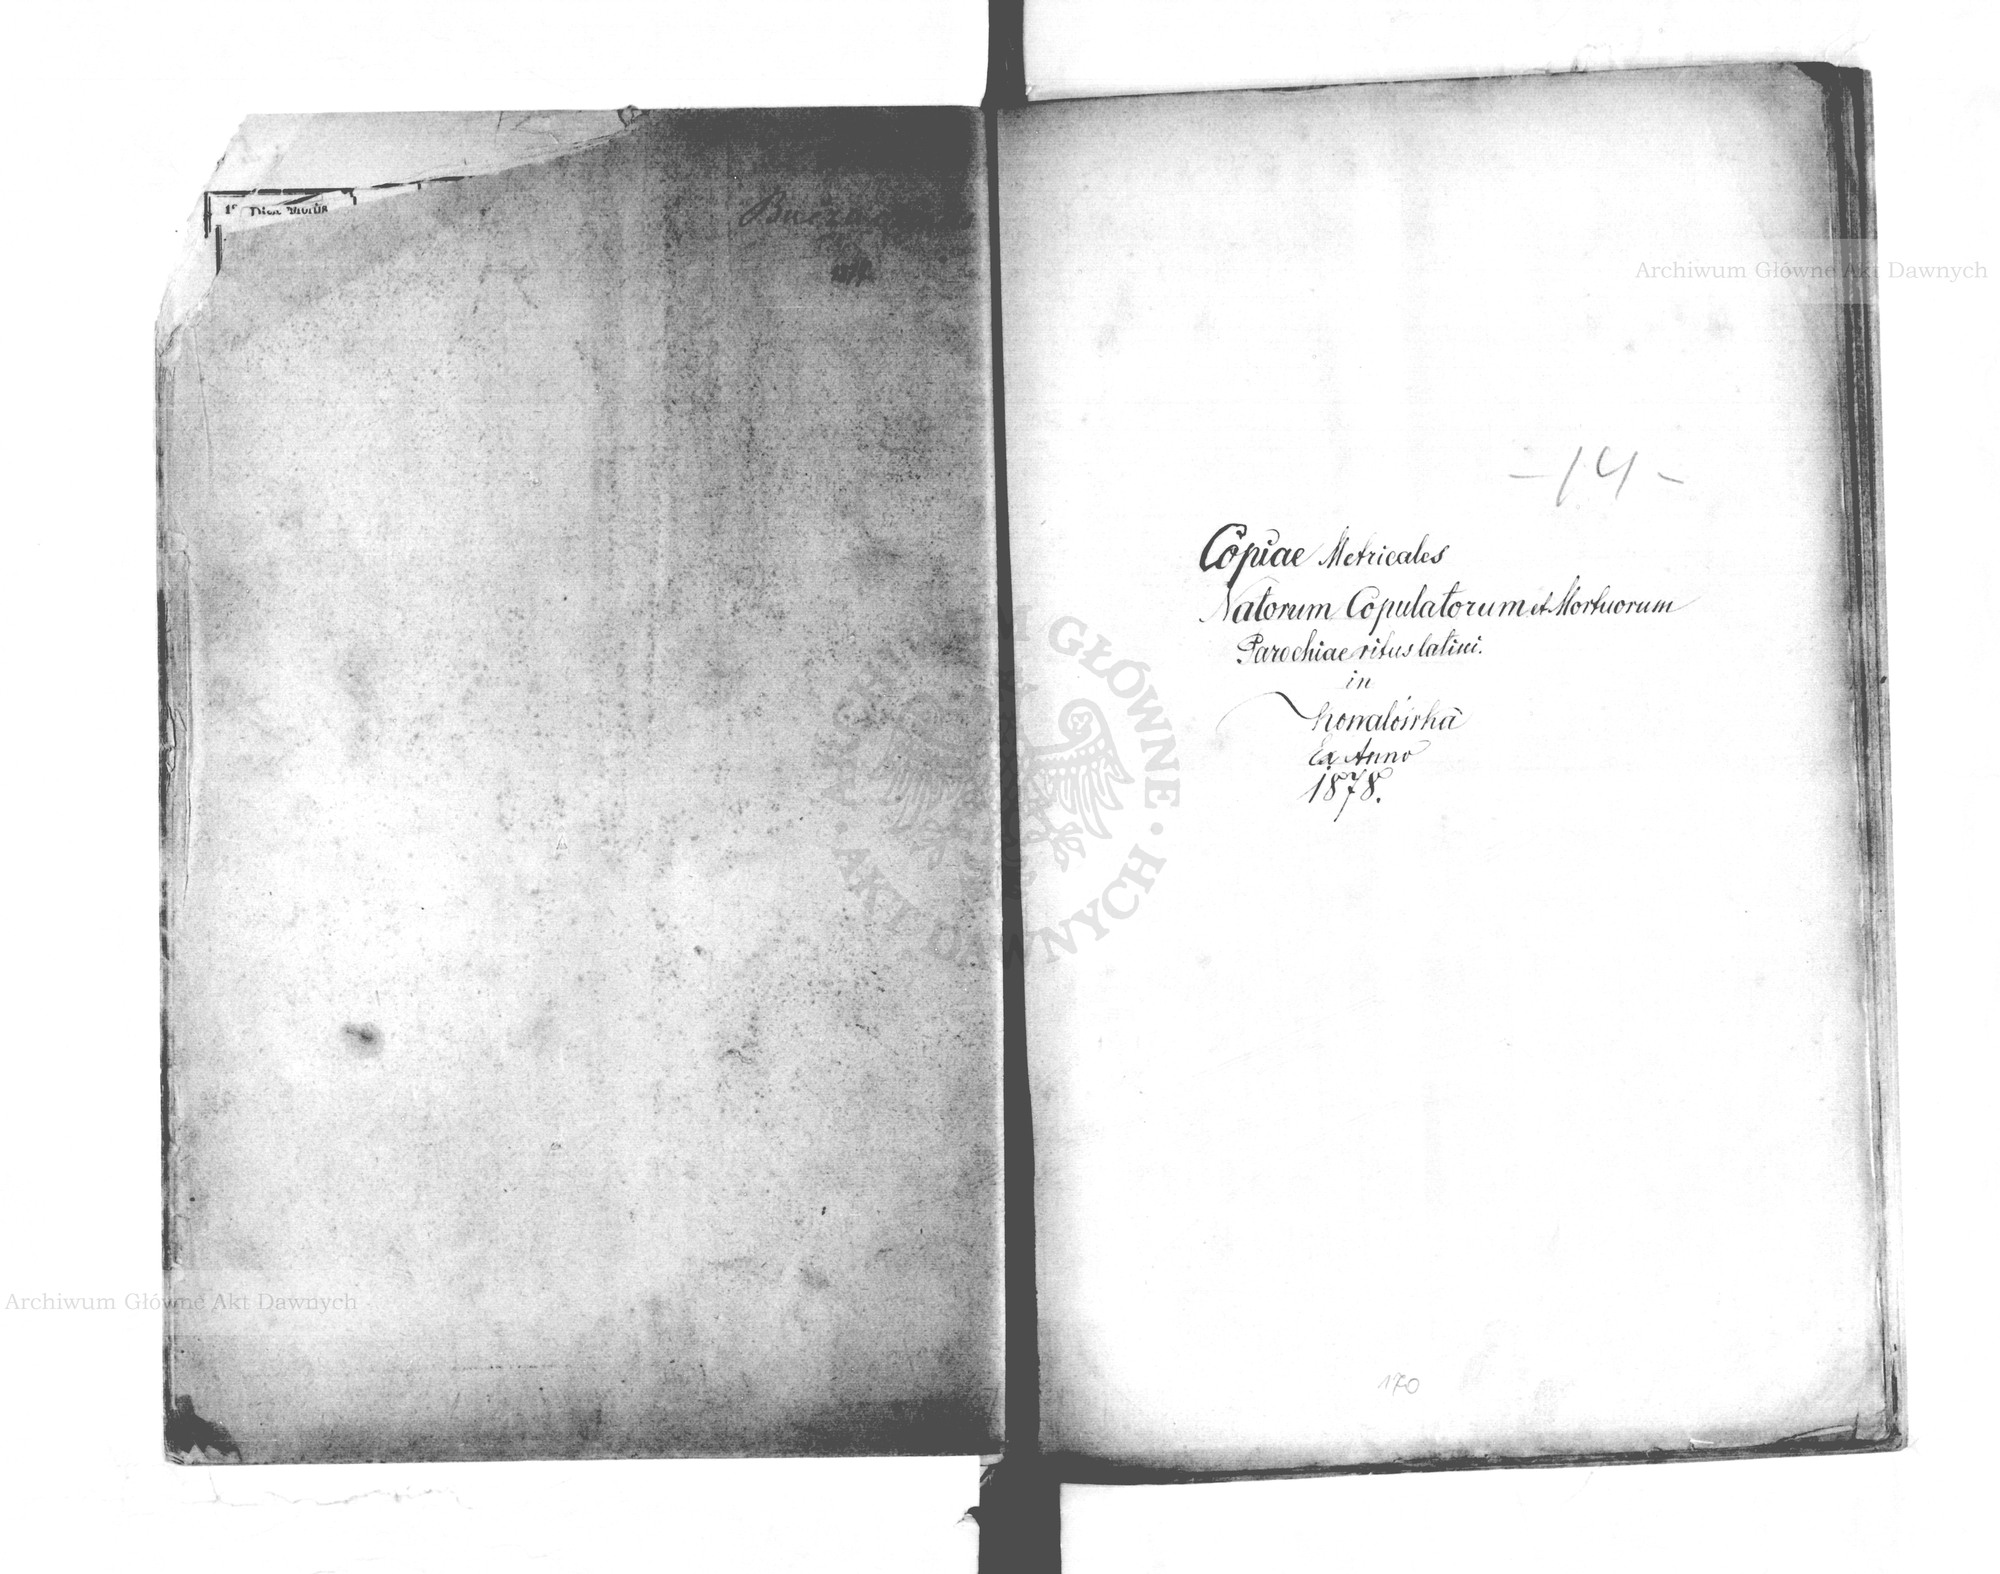 Dies Mortis
-14-
Copiae Metricales
Natorum Copulatorum et Mortuorum
Parochiae ritus latini.
in
Kowalówka
Ex Anno
1878.
170
Archiwum Główne Akt Dawnych
Archiwum Główne Akt Dawnych
ARCHIWUM GŁÓWNE · AKT DAWNYCH ·